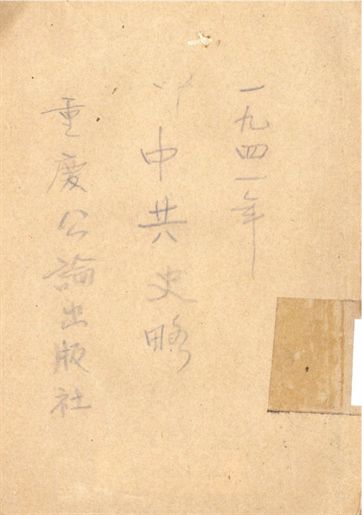 一九四一年
中共史略
重慶公論出版社